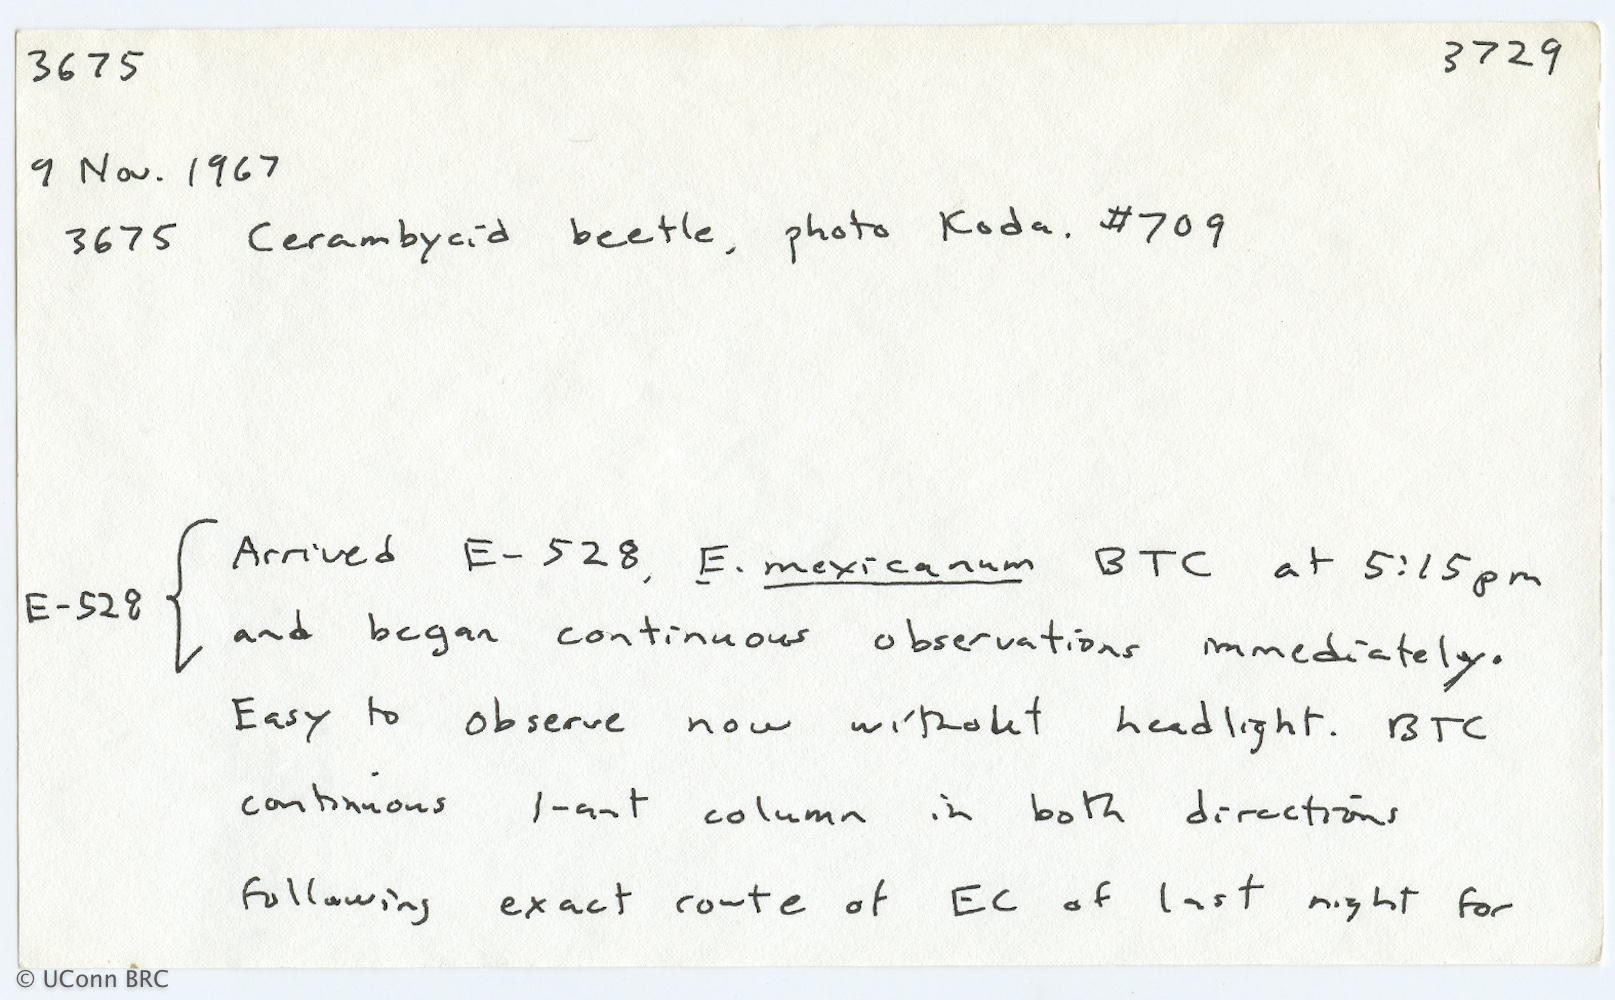 3675 3729
9 Nov. 1967
3675 Cerambycid beetle, photo Koda. #709
Arrived E-528, E. mexicanum BTC at 5:15pm
E-528 and began continuous observations immediately.
Easy to observe now without headlight. BTC
continuous 1-ant column in both directions
following exact route of EC of last night for
© UConn BRC